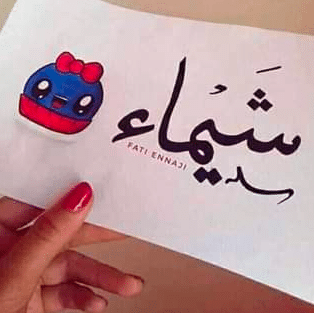 شَيْمَاء
FATI ENNAJI